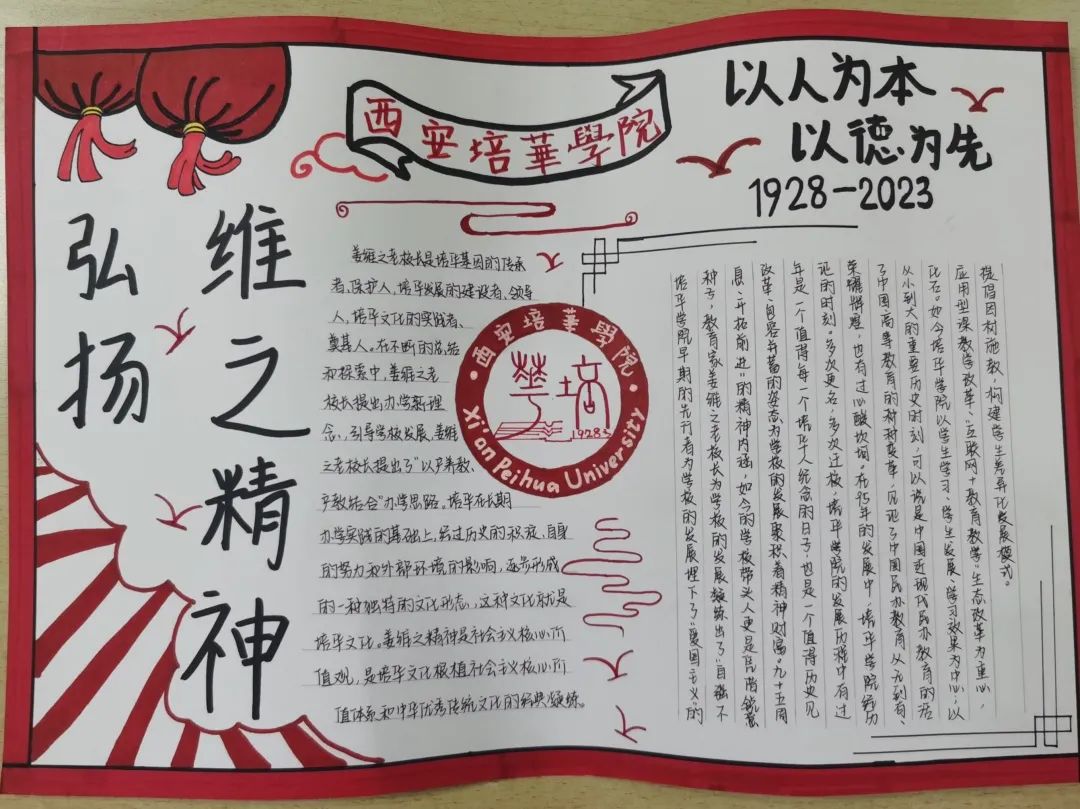 西安培華學院
以人为本
以德为先
1928-2023
弘扬
维之精神
姜维之老校长是培华基因的传承
者、保护人,培华发展的建设者、领导
人,培华文化的实践者、
奠基人。在不断的总结
和探索中,姜维之老
校长提出办学新理
念,引导学校发展,姜维
之老校长提出了“以产养教、
产教结合”办学思路。培华在长期
办学实践的基础上,经过历史的积淀,自身
的努力和外部环境的影响,逐步形成
的一种独特的文化形态,这种文化就是
培华文化。姜维之精神是社会主义核心价
值观,是培华文化根植社会主义核心价
值体系和中华优秀传统文化的经典凝练。
西安培華學院
華培
1928
Xi an Peihua University
培华学院早期的先行者为学校的发展埋下了“爱国主义”的
种子,教育家姜维之老校长为学校的发展凝练出了“自强不
息、开拓前进”的精神内涵,如今的学校带头人更是凭借锐意
改革、包容并蓄的姿态为学校的发展聚积着精神财富。九十五周
年是一个值得每一个培华人纪念的日子,也是一个值得历史见
证的时刻。多次更名,多次迁校,培华学院的发展历程中有过
荣耀辉煌,也有过心酸坎坷。在95年的发展中,培华学院经历
了中国高等教育的种种变革,见证了中国民办教育从无到有、
从小到大的重要历史时刻,可以说是中国近现代民办教育的活
化石。如今培华学院以学生学习、学生发展、学习效果为中心,以
应用型课教学改革、“互联网+教育教学”生态改革为重心,
提倡因材施教,构建学生差异化发展模式。